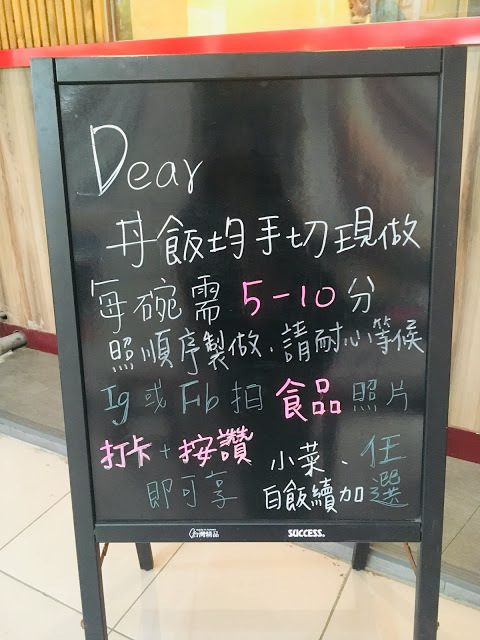 Dear
丼飯均手切現做
每碗需 5-10 分
照順序製做、請耐心等候
Ig 或 Fb 拍 食品 照片
打卡 + 按讚
即可享
小菜、任選
白飯續加
台灣精品
SUCCESS®